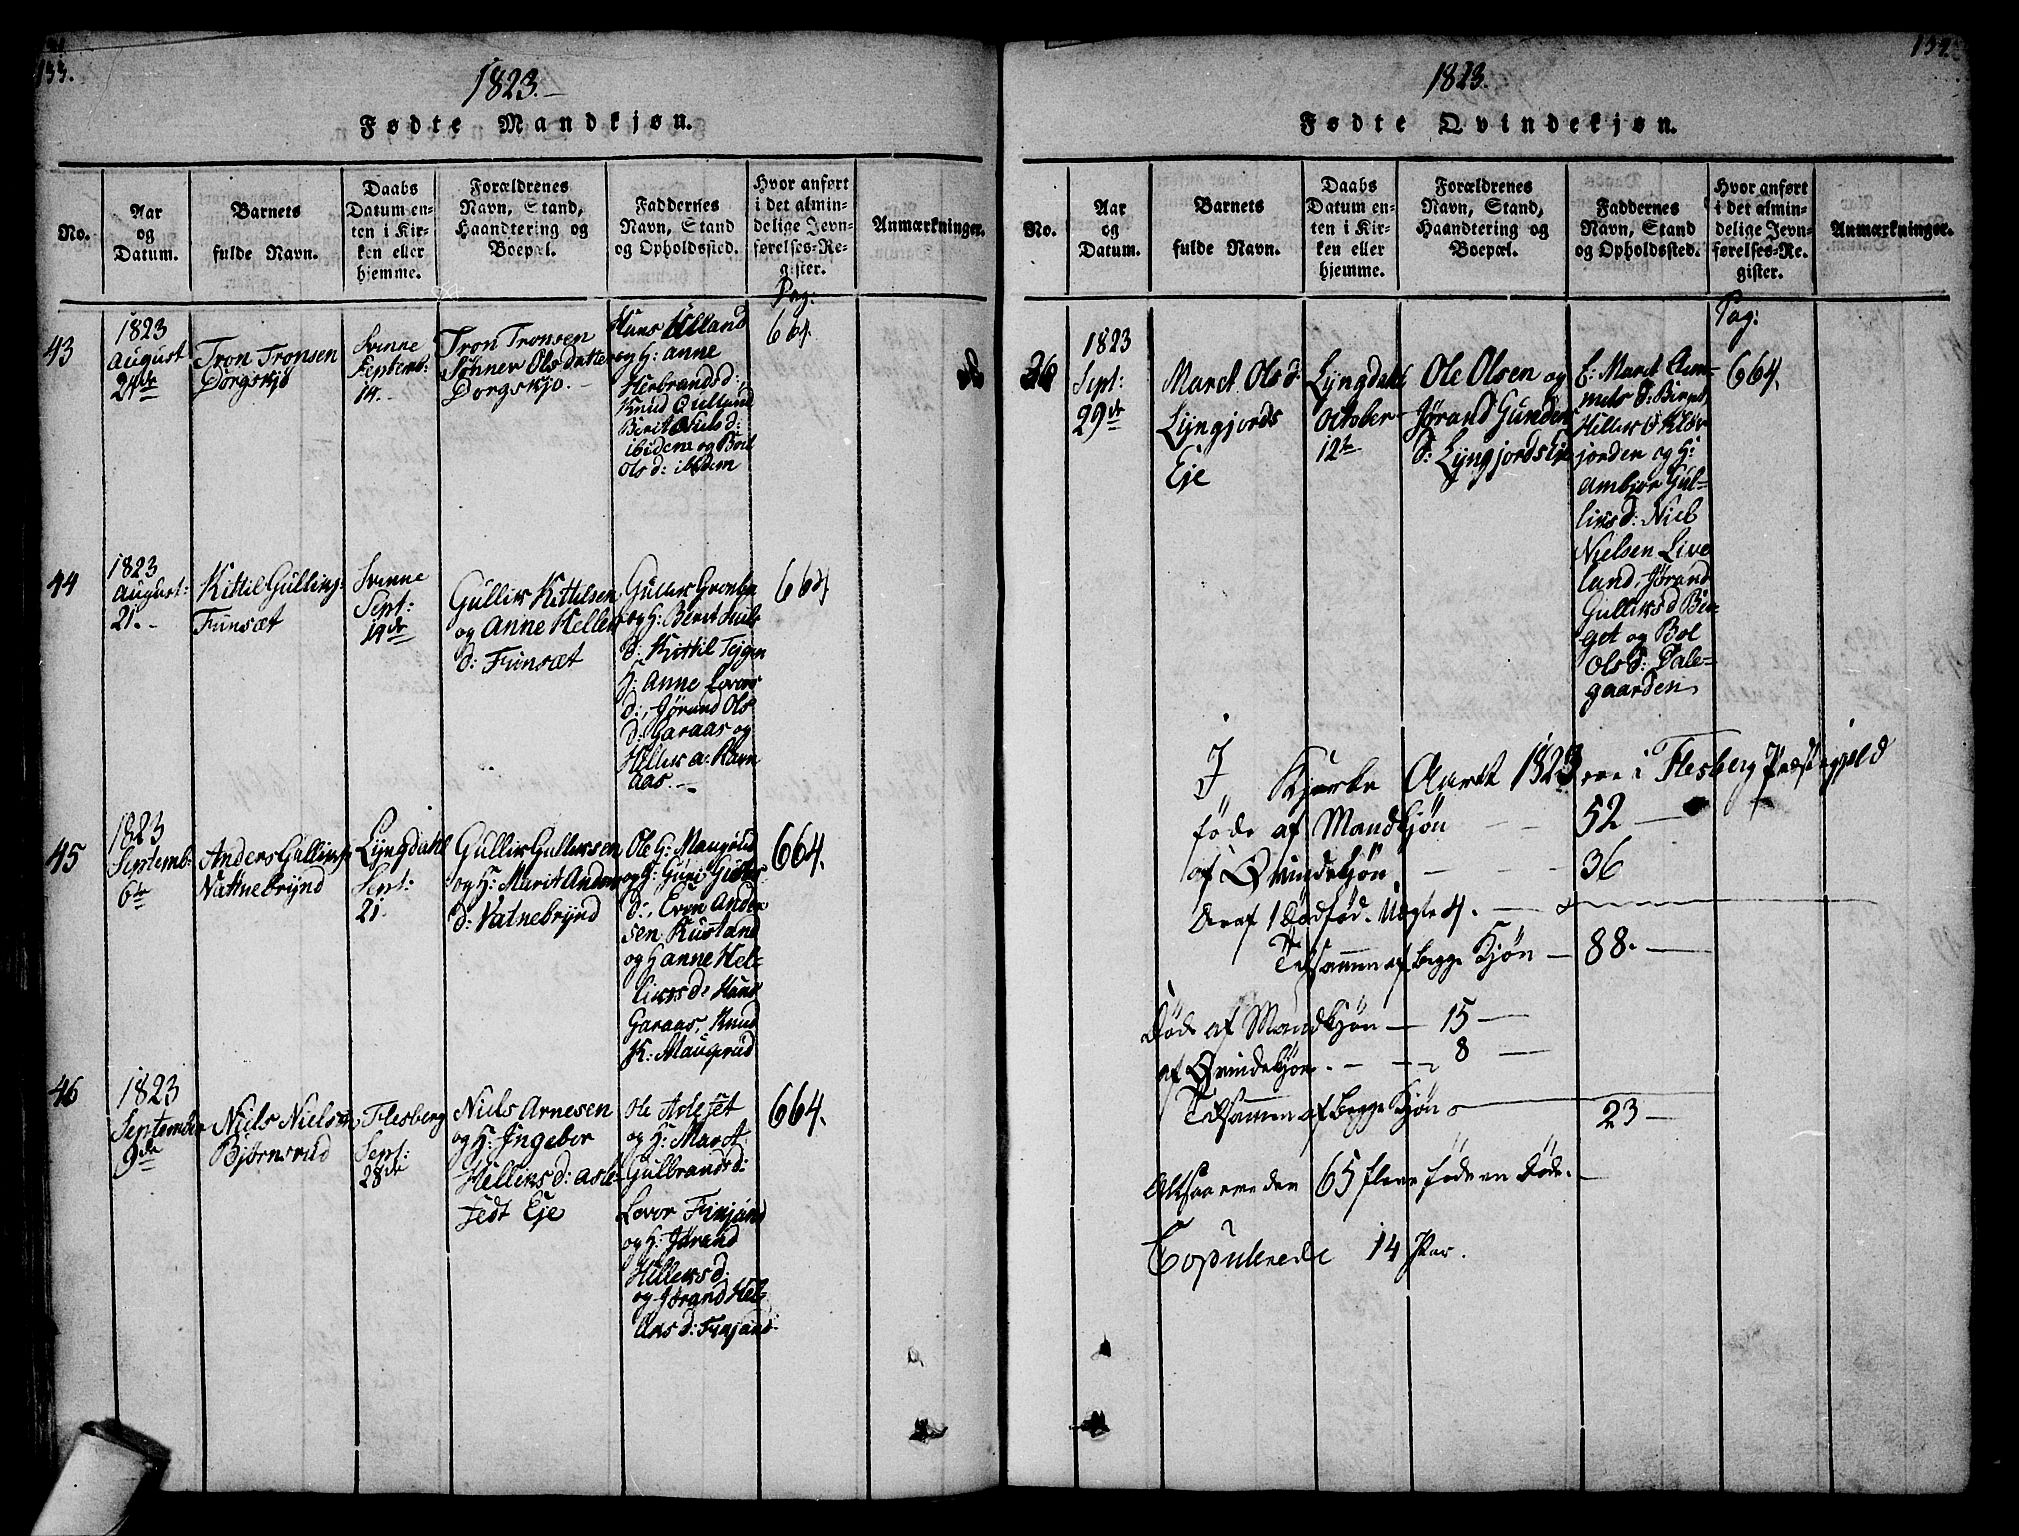 133.
1823.
Fødte Mandkjøn.
No.
Aar
og
Datum.
Barnets
fulde Navn.
Daabs
Datum en-
ten i Kir-
ken eller
hjemme.
Forældrenes
Navn, Stand,
Haandtering og
Boepæl.
Faddernes
Navn, Stand
og Opholdssted.
Hvor anført
i det almin-
delige Jevn-
førelses-Re-
gister.
Anmærkninger.
Pag:
43
1823
August
24de
Tron Tronsen
Dorgskjø
Svenne
Septemb:
14.
Tron Tronsen
Dorgskjø.
og H: Anne
Herbrandsd:,
Berit Nielsd:
ibidem og Boel
Olsd: ibidem
664.
44
1823
August:
21.
Kittil Gullings:
Funsæt
Svenne
Sept:
14de
Gulliv Kittilsen
og Anne Hellev
d: Funsæt
og H: Berit
d: Kittil Tejgen
H: Anne
d:, Jørand Ols
d: Garaas og
aas.
664
45
1823
Septemb:
6te
Anders Gullivs:
Vattnebrynd
Lyngdahl
Sept:
21.
Gulliv Gullivsen
og H: Marit Anders
d: Vatnebrynd
Ole G: Maugerud
og H: Guri
d:, Even Ander
sen Rusland
og H Anne Hel-
livsd:
Garaas, Knud
K: Maugerud
664.
46
1823
September
9de
Niels Nielsen
Bjørnsrud
Flesberg
Sept:
28de
Niels Arnesen
og H: Ingebor
Hellivsd: Asle-
fedt Eje
Ole Aslefet
og H: Maret
Gulbrandsd:
og H: Jørand
Hellevsd:
og Jørand Hel-
664.
1823.
Fødte Qvindekjøn.
No.
Aar
og
Datum.
Barnets
fulde Navn.
Daabs
Datum en-
ten i Kir-
ken eller
hjemme.
Forældrenes
Navn, Stand,
Haandtering og
Boepæl.
Faddernes
Navn, Stand
og Opholdssted.
Hvor anført
i det almin-
delige Jevn-
førelses-Re-
gister.
Anmærkninger.
Pag:
36
1823
Sept:
29de
Maret Olsd:
Lyngjords
Eje
Lyngdahl
October
12te
Ole Olsen og
Jørand Gunders
d: Lyngjords Eje
jorden og H:
Ambior Gul-
livsd: Niels
Nielsen Live
land, Jørand
Gullivsd
got og Bol
Olsd: Dale-
gaarden
664.
I Kirke Aaret 1823 ere i Flesberg Præstegjeld
føde af Mandkjøn — 52 —
af Qvindekjøn — 36
deraf 1 dødfød. Uægte 4.
Tilsammen af begge Kjøn — 88. —
Døde af Mandkjøn — 15 —
af Qvindekjøn. — 8 —
Tilsammen af begge Kjøn 23 —
Altsaa ere der 65 flere føde en Døde.
Copulerede 14 Par.